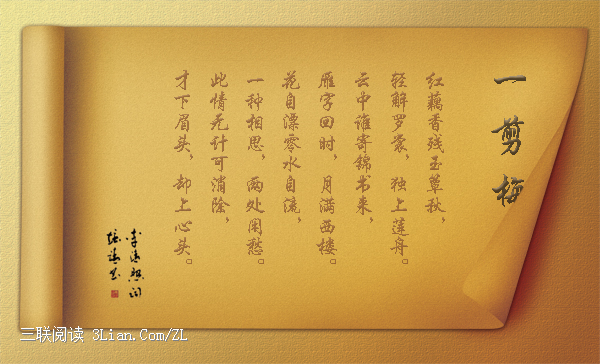 一剪梅
红藕香残玉蕈秋，
轻解罗裳，独上莲舟。
云中谁寄锦书来，
雁字回时，月满西楼。
花自漂零水自流，
一种相思，两处闲愁。
此情无计可消除，
才下眉头，却上心头。
三联阅读 3Lian.Com/ZL